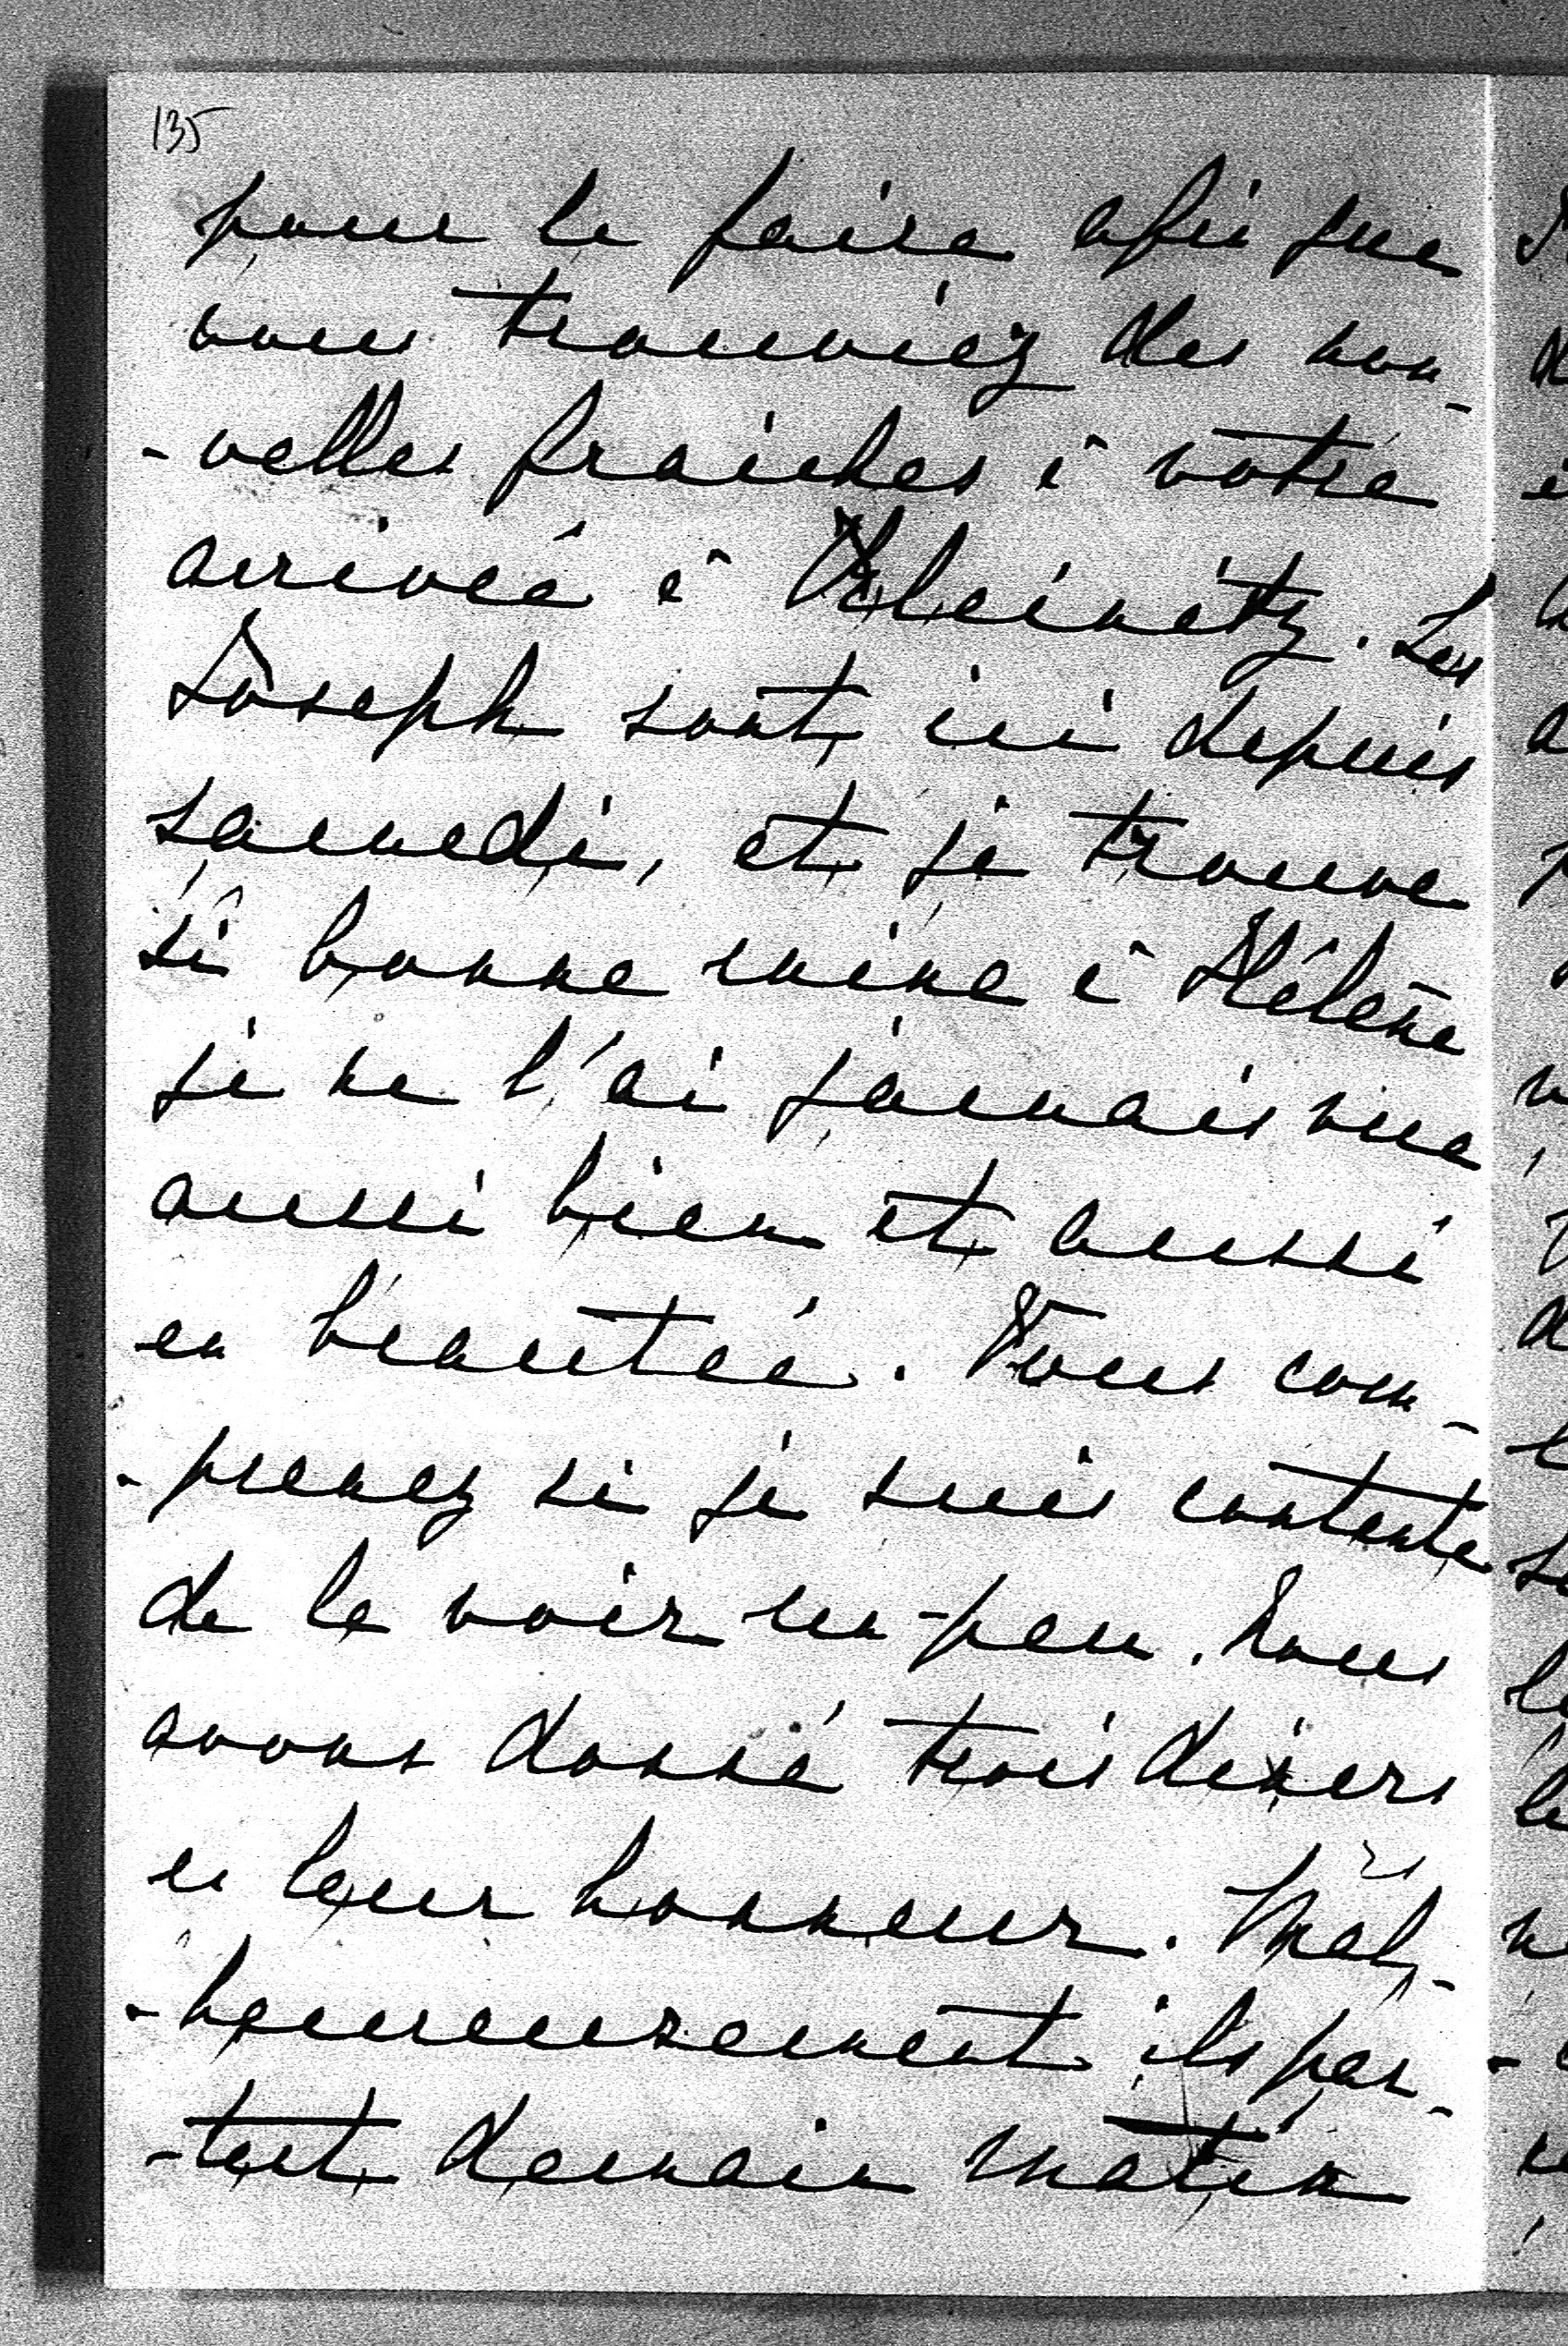 135
pour le faire afin que
vous trouviez des nou-
-velles fraiches à votre
arrivée à Vrbeinetz. Les
Joseph sont ici depuis
samedi, et je trouve
si bonne mine à Hélène
je ne l'ai jamais vue
aussi bien et aussi
en beautée. Vous com-
-prenez si je suis contente
de la voir un peu. Nous
avons donné trois diners
en leur honneur. Mal-
-heureusement ils par-
-tent demain matin